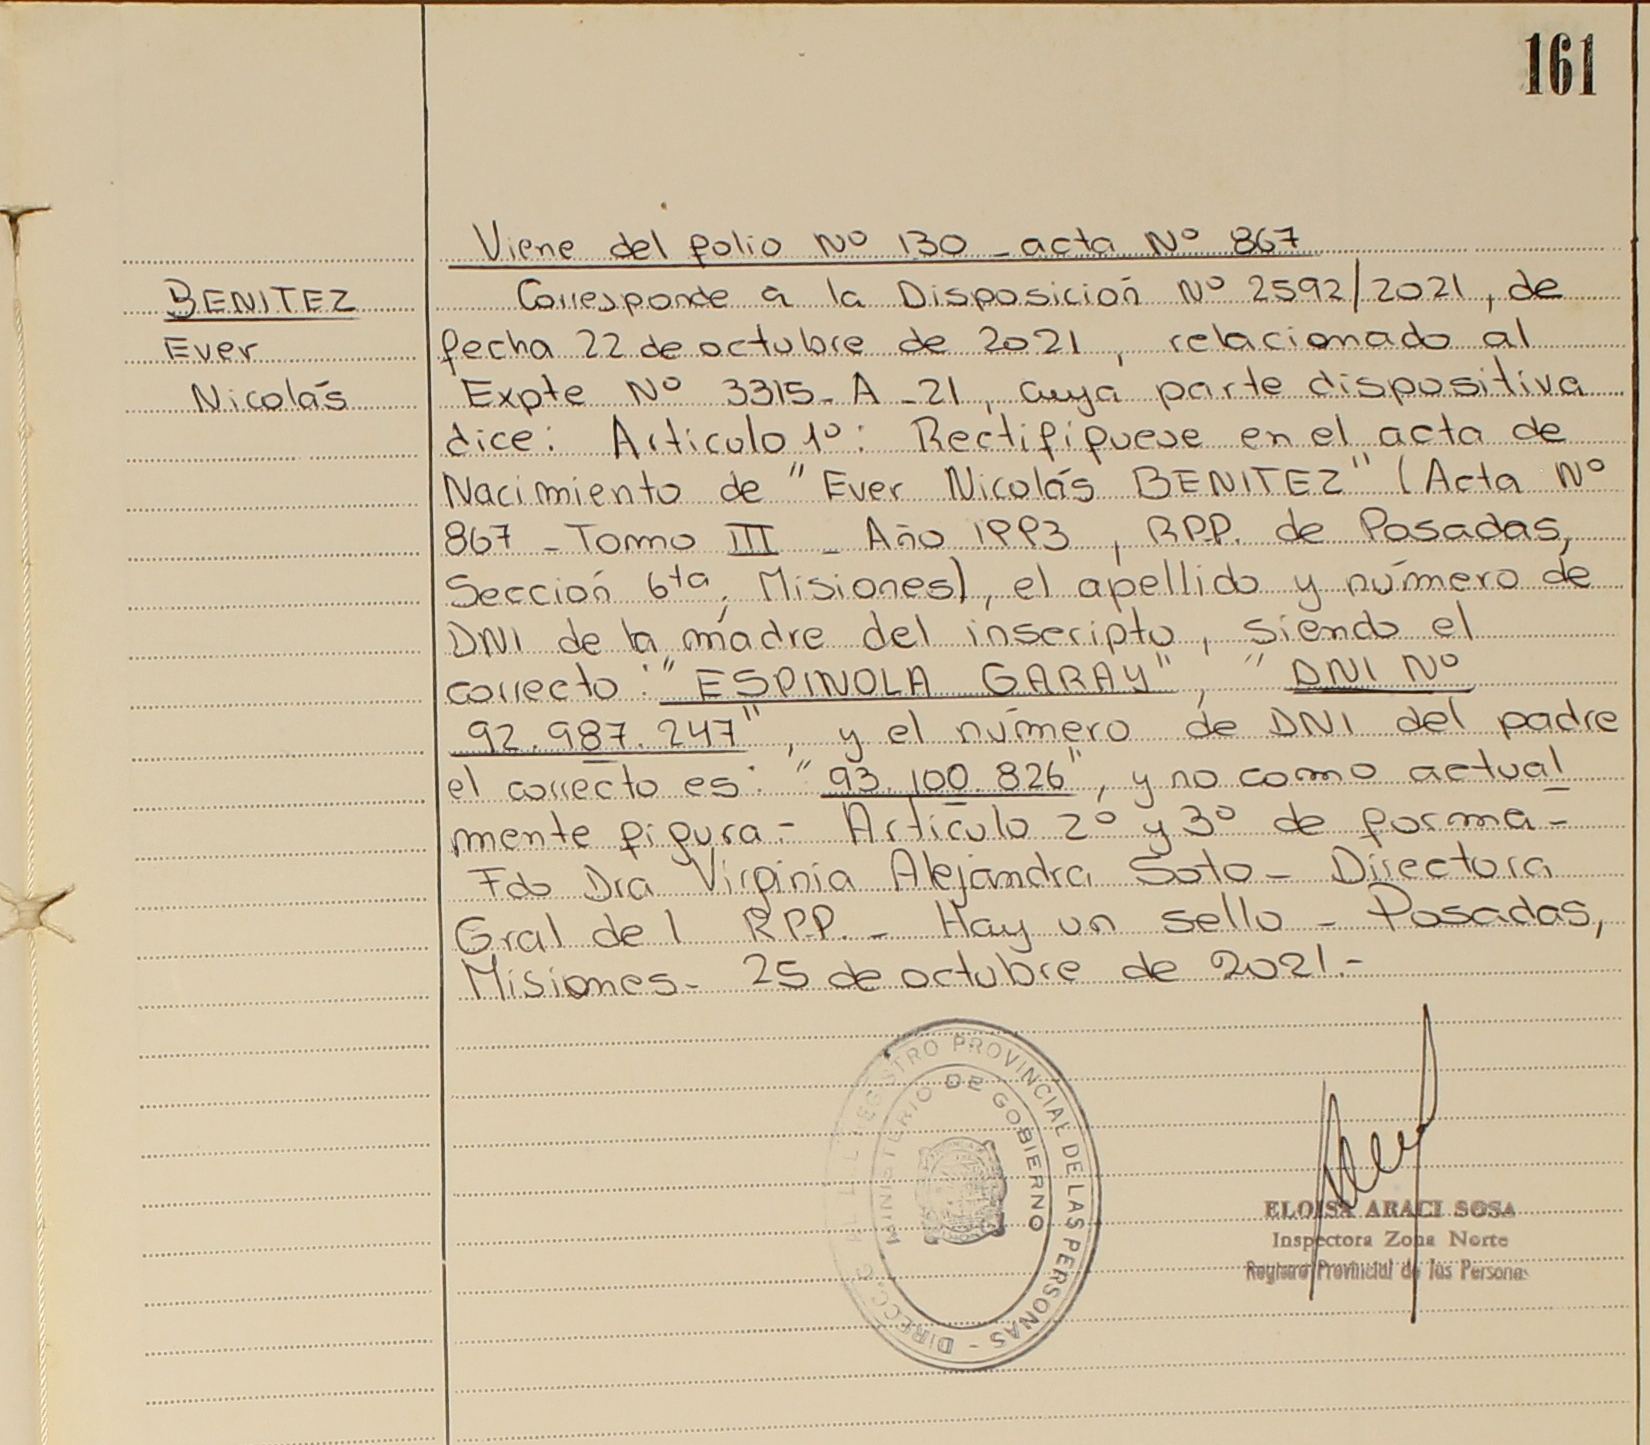 161
Viene del folio Nº 130 - acta Nº 867
BENITEZ
Ever
Nicolás
Corresponde a la Disposición Nº 2592/2021, de
fecha 22 de octubre de 2021, relacionado al
Expte Nº 3315-A-21, cuya parte dispositiva
dice: Artículo 1º: Rectifíquese en el acta de
Nacimiento de "Ever Nicolás BENITEZ" (Acta Nº
867 - Tomo III - Año 1993, R.P.P. de Posadas,
Sección 6ta, Misiones), el apellido y número de
DNI de la madre del inscripto, siendo el
correcto: "ESPINOLA GARAY", "DNI Nº
92.987.247", y el número de DNI del padre
el correcto es: "93.100.826", y no como actual
mente figura.- Artículo 2º y 3º de forma-
Fdo Dra Virginia Alejandra Soto - Directora
Gral del R.P.P. - Hay un sello - Posadas,
Misiones- 25 de octubre de 2021.-
DIRECC. GRAL DEL REGISTRO PROVINCIAL DE LAS PERSONAS -
MINISTERIO DE GOBIERNO
ELOISA ARACI SOSA
Inspectora Zona Norte
Registro Provincial de las Personas